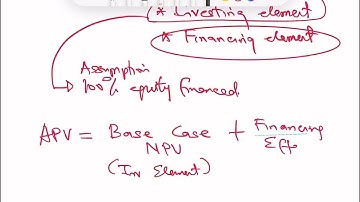 * Investing element
* Financing element
Assumption
100% equity financed
APV = Base Case + Financing
NPV Effe
(Inv Element)